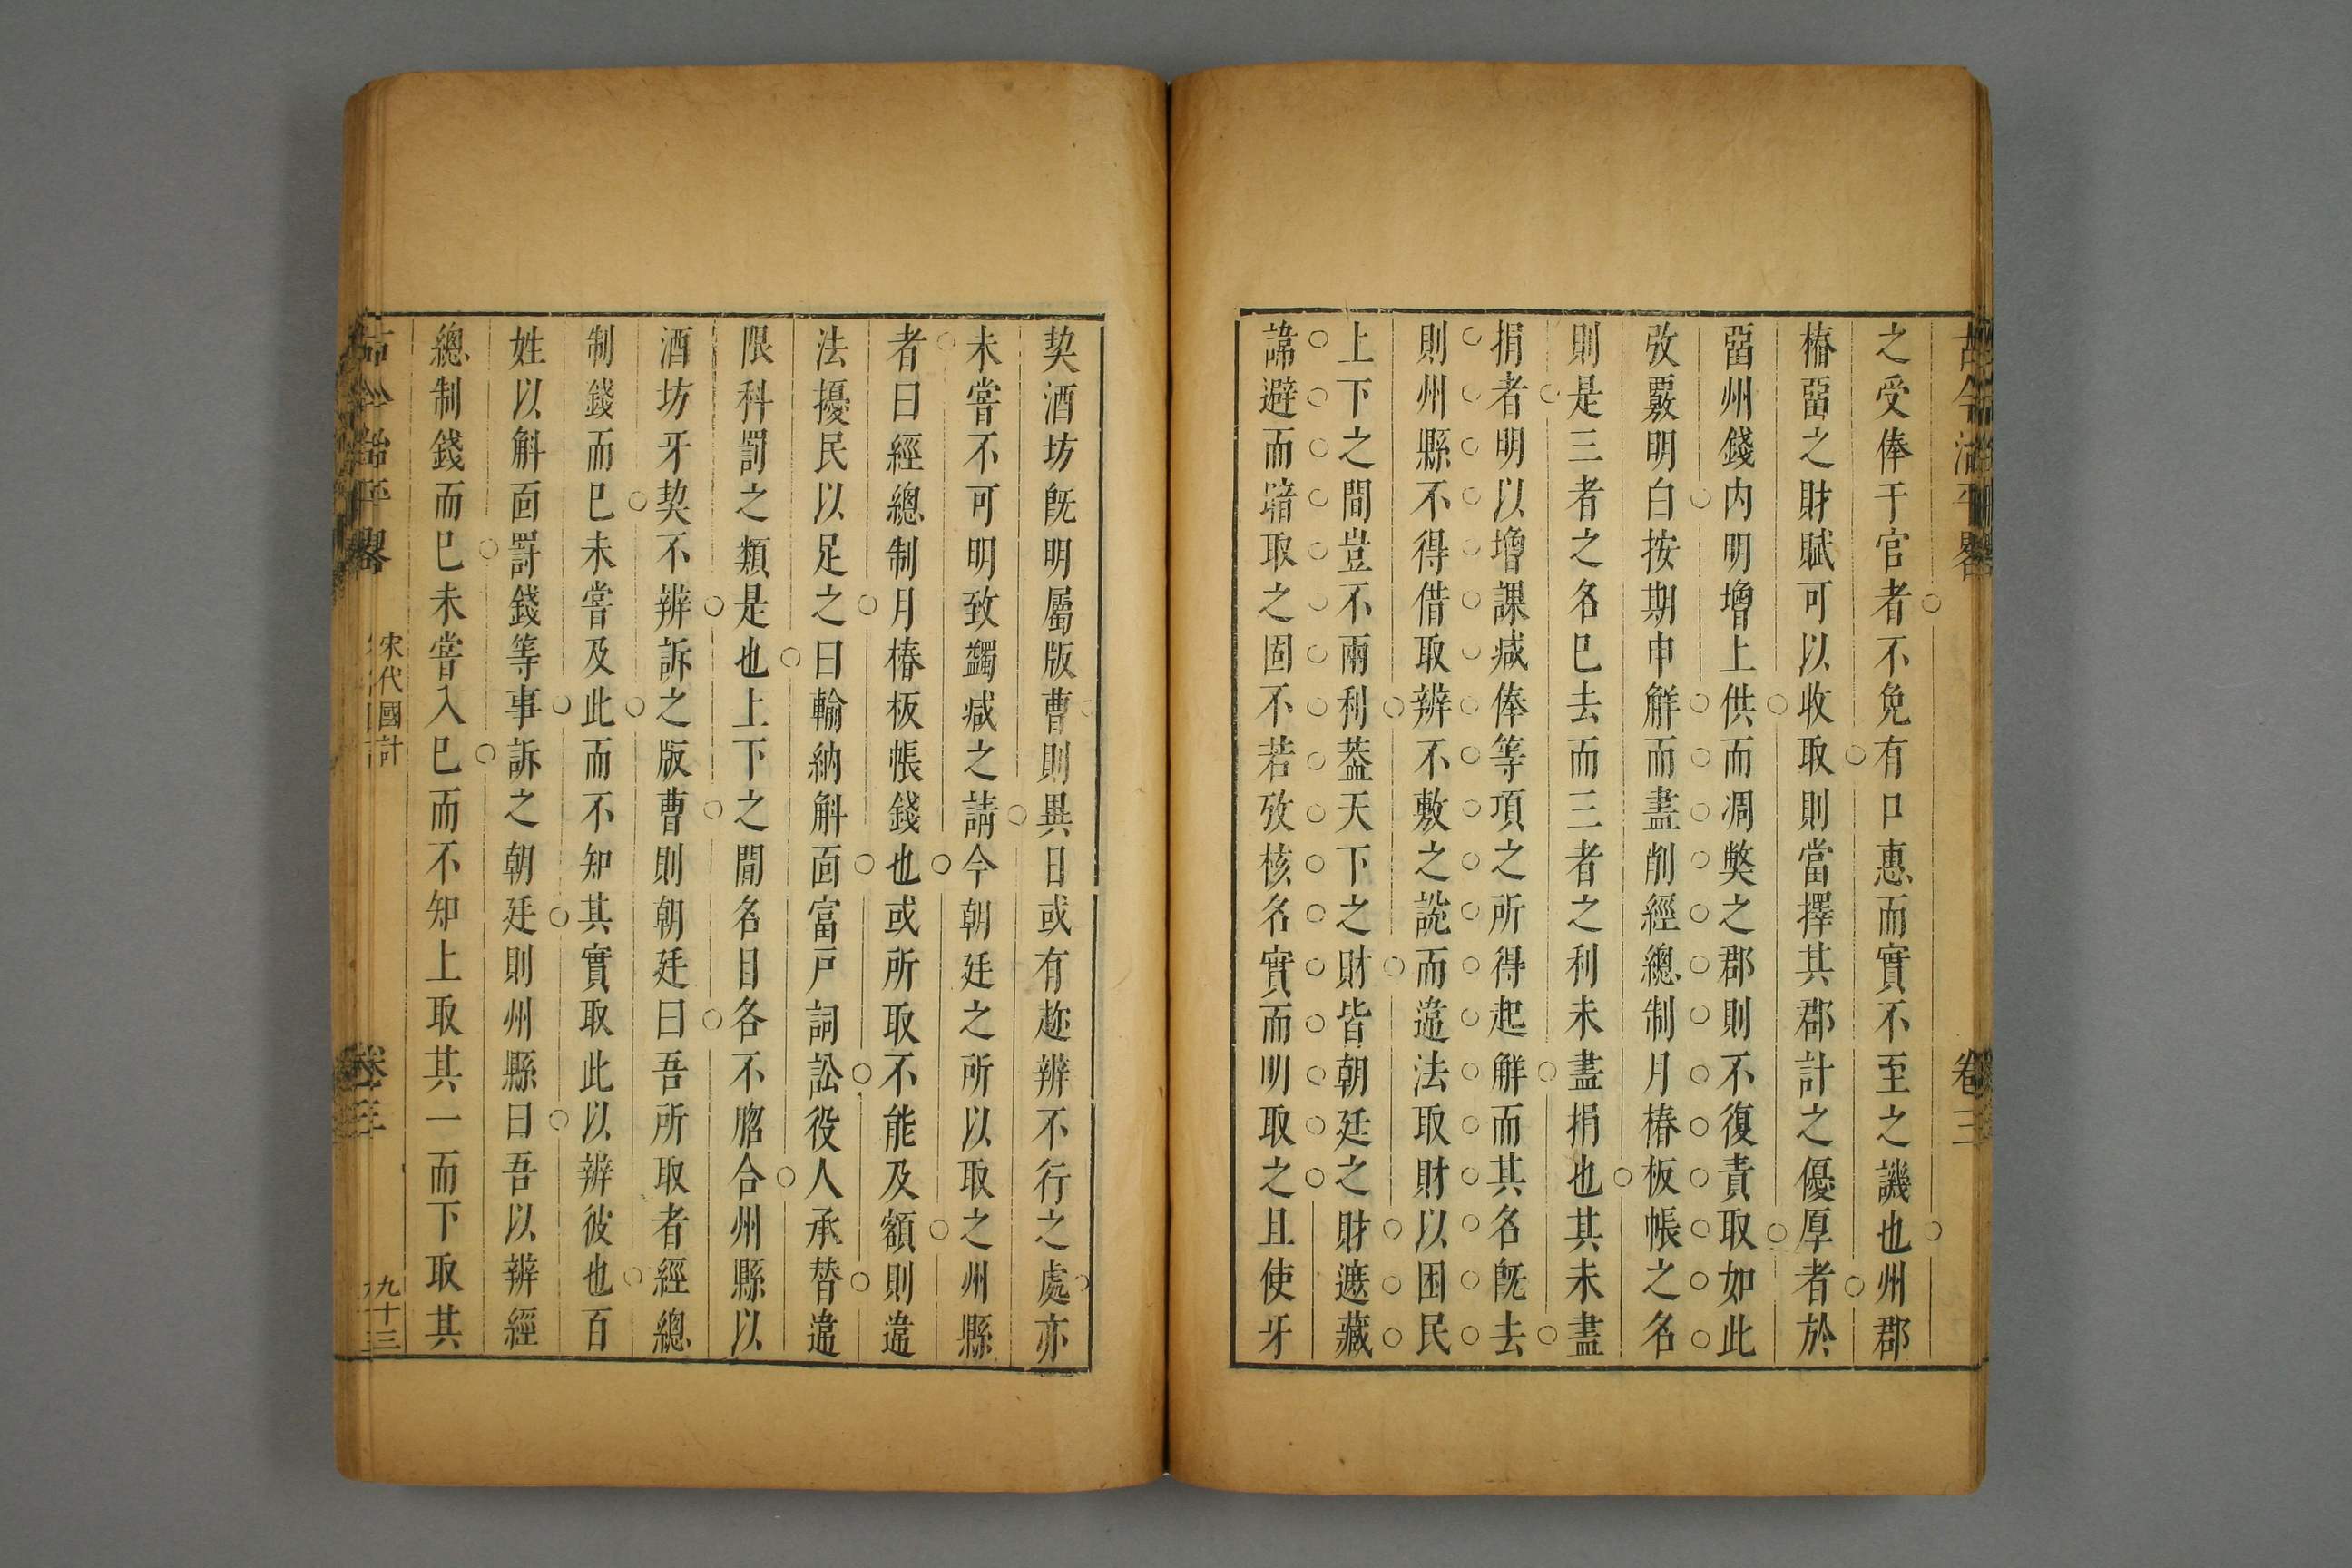 古今治平畧
卷三
之受俸于官者不免有口惠而實不至之譏也州郡
椿畱之財賦可以收取則當擇其郡計之優厚者於
畱州錢内明增上供而凋獘之郡則不復責取如此
攷覈明白按期申解而盡削經總制月椿板帳之名
則是三者之名已去而三者之利未盡捐也其未盡
捐者明以增課减俸等項之所得起解而其名旣去
則州縣不得借取辨不敷之說而違法取財以困民
上下之間豈不兩利葢天下之財皆朝廷之財遮藏
諱避而暗取之固不若攷核名實而明取之且使牙
契酒坊旣明屬版曹則異日或有趂辨不行之處亦
未嘗不可明致蠲减之請今朝廷之所以取之州縣
者曰經總制月椿板帳錢也或所取不能及額則違
法擾民以足之曰輸納斛面富戸詞訟役人承替違
限科罰之類是也上下之間名目各不脗合州縣以
酒坊牙契不辨訴之版曹則朝廷曰吾所取者經總
制錢而已未嘗及此而不知其實取此以辨彼也百
姓以斛面罰錢等事訴之朝廷則州縣曰吾以辨經
總制錢而已未嘗入已而不知上取其一而下取其
古今治平畧
宋代國計
卷三
九十三